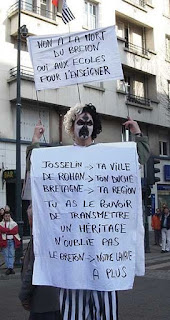 NON À LA MORT
DU BRETON
OUI AUX ÉCOLES
POUR L'ENSEIGNER
JOSSELIN → TA VILLE
DE ROHAN → TON DUCHÉ
BRETAGNE → TA RÉGION
TU AS LE POUVOIR
DE TRANSMETTRE
UN HÉRITAGE
N'OUBLIE PAS
LE BRETON → NOTRE LANGUE
À PLUS